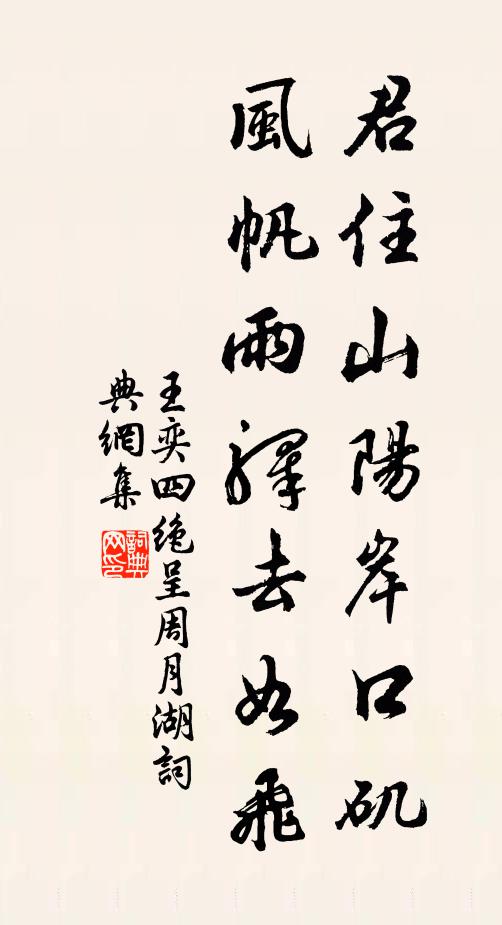 君住山陽岸口矶
風帆雨驛去如飛
王奕四绝呈周月湖詞
典網集
詞典网印